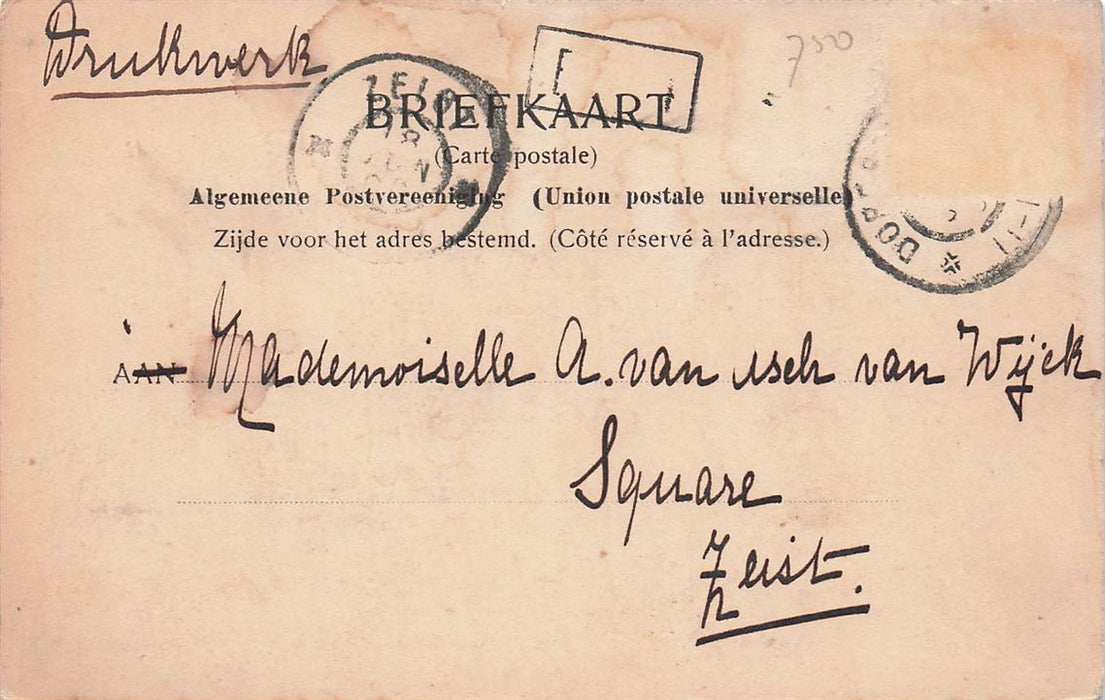 Drukwerk
750
ZEIST
BRIEFKAART
(Carte postale)
Algemeene Postvereeniging (Union postale universelle)
Zijde voor het adres bestemd. (Côté réservé à l'adresse.)
AAN Mademoiselle A. van Asch van Wijck
Square
Zeist.